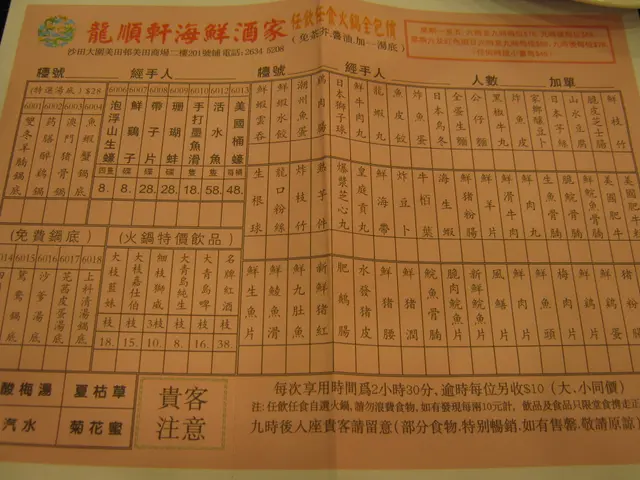 龍順軒海鮮酒家
任飲任食火鍋全包價
(免茶芥.醬油.加一.湯底)
沙田大圍美田邨美田商場二樓201號舖 電話:2634 5208
檯號 經手人 檯號 經手人 人數 加單
(特選湯底) $28
6001 6003 6004 6002
雙冬羊腩鍋底
藥膳醉鷄鍋底
澳門豬骨鍋底
魚蝦蟹鍋底
6006 6007 6008 6009 6010 6012 6013
泡浮山生蠔
鮮鷄子
帶子片
珊瑚蚌
手打墨魚滑
活水蝦
美國桶蠔
四隻 碟 碟 碟 隻 碟 每桶
8. 8. 28. 28. 18. 58. 48.
鮮蝦雲吞
鮮蝦水餃
潮州魚蛋
鷄肉腸
日本獅子球
鮮牛肉丸
龍蝦丸
魚皮餃
炸魚蛋
日本烏冬
全蛋生麵
公仔麵
黑椒牛丸
炸魚皮
家鄉釀豆卜
日本芋絲
山水豆腐
脆皮芝士腸
鮮枝竹
生根球
龍口粉絲
炸枝竹
爆漿芝心丸
皇庭貢丸
鮮海帶
炸豆卜
牛栢葉
海生蝦
鮮豬粉腸
鮮羊片
鮮滑牛肉
鮮牛肉丸
生魚骨腩
脆鯇骨腩
鮮鯇魚骨腩
美國肥牛
(免費鍋底)
6015 6016 6017 6018
鴛鴦鍋底
沙爹湯底
芫茜皮蛋湯底
上料清湯鍋底
(火鍋特價飲品)
大枝藍妹
大枝嘉任伯
細枝獅威
大青島純生
大青島啤
名牌紅酒
枝 枝 3枝 枝 枝 枝
18. 15. 10. 8. 16. 38.
鮮生魚片
鮮鯪魚滑
鮮九肚魚
新鮮豬紅
肥鵝腸
水發豬皮
鮮豬腰
鮮豬潤
鯇魚骨腩
脆肉鯇魚片
新鮮鯇魚片
風鱔片
鮮肉片
鮮魚頭
梅肉片
鮮鷄片
鮮鷄蛋
酸梅湯 夏枯草
汽水 菊花蜜
貴客注意
每次享用時間爲2小時30分,逾時每位另收$10 (大、小同價)
注:任飲任食自選火鍋,請勿浪費食物,如有發現每兩10元計, 飲品及食品只限堂食携走正
九時後人座貴客請留意(部分食物.特別暢銷.如有售罄.敬請原諒)